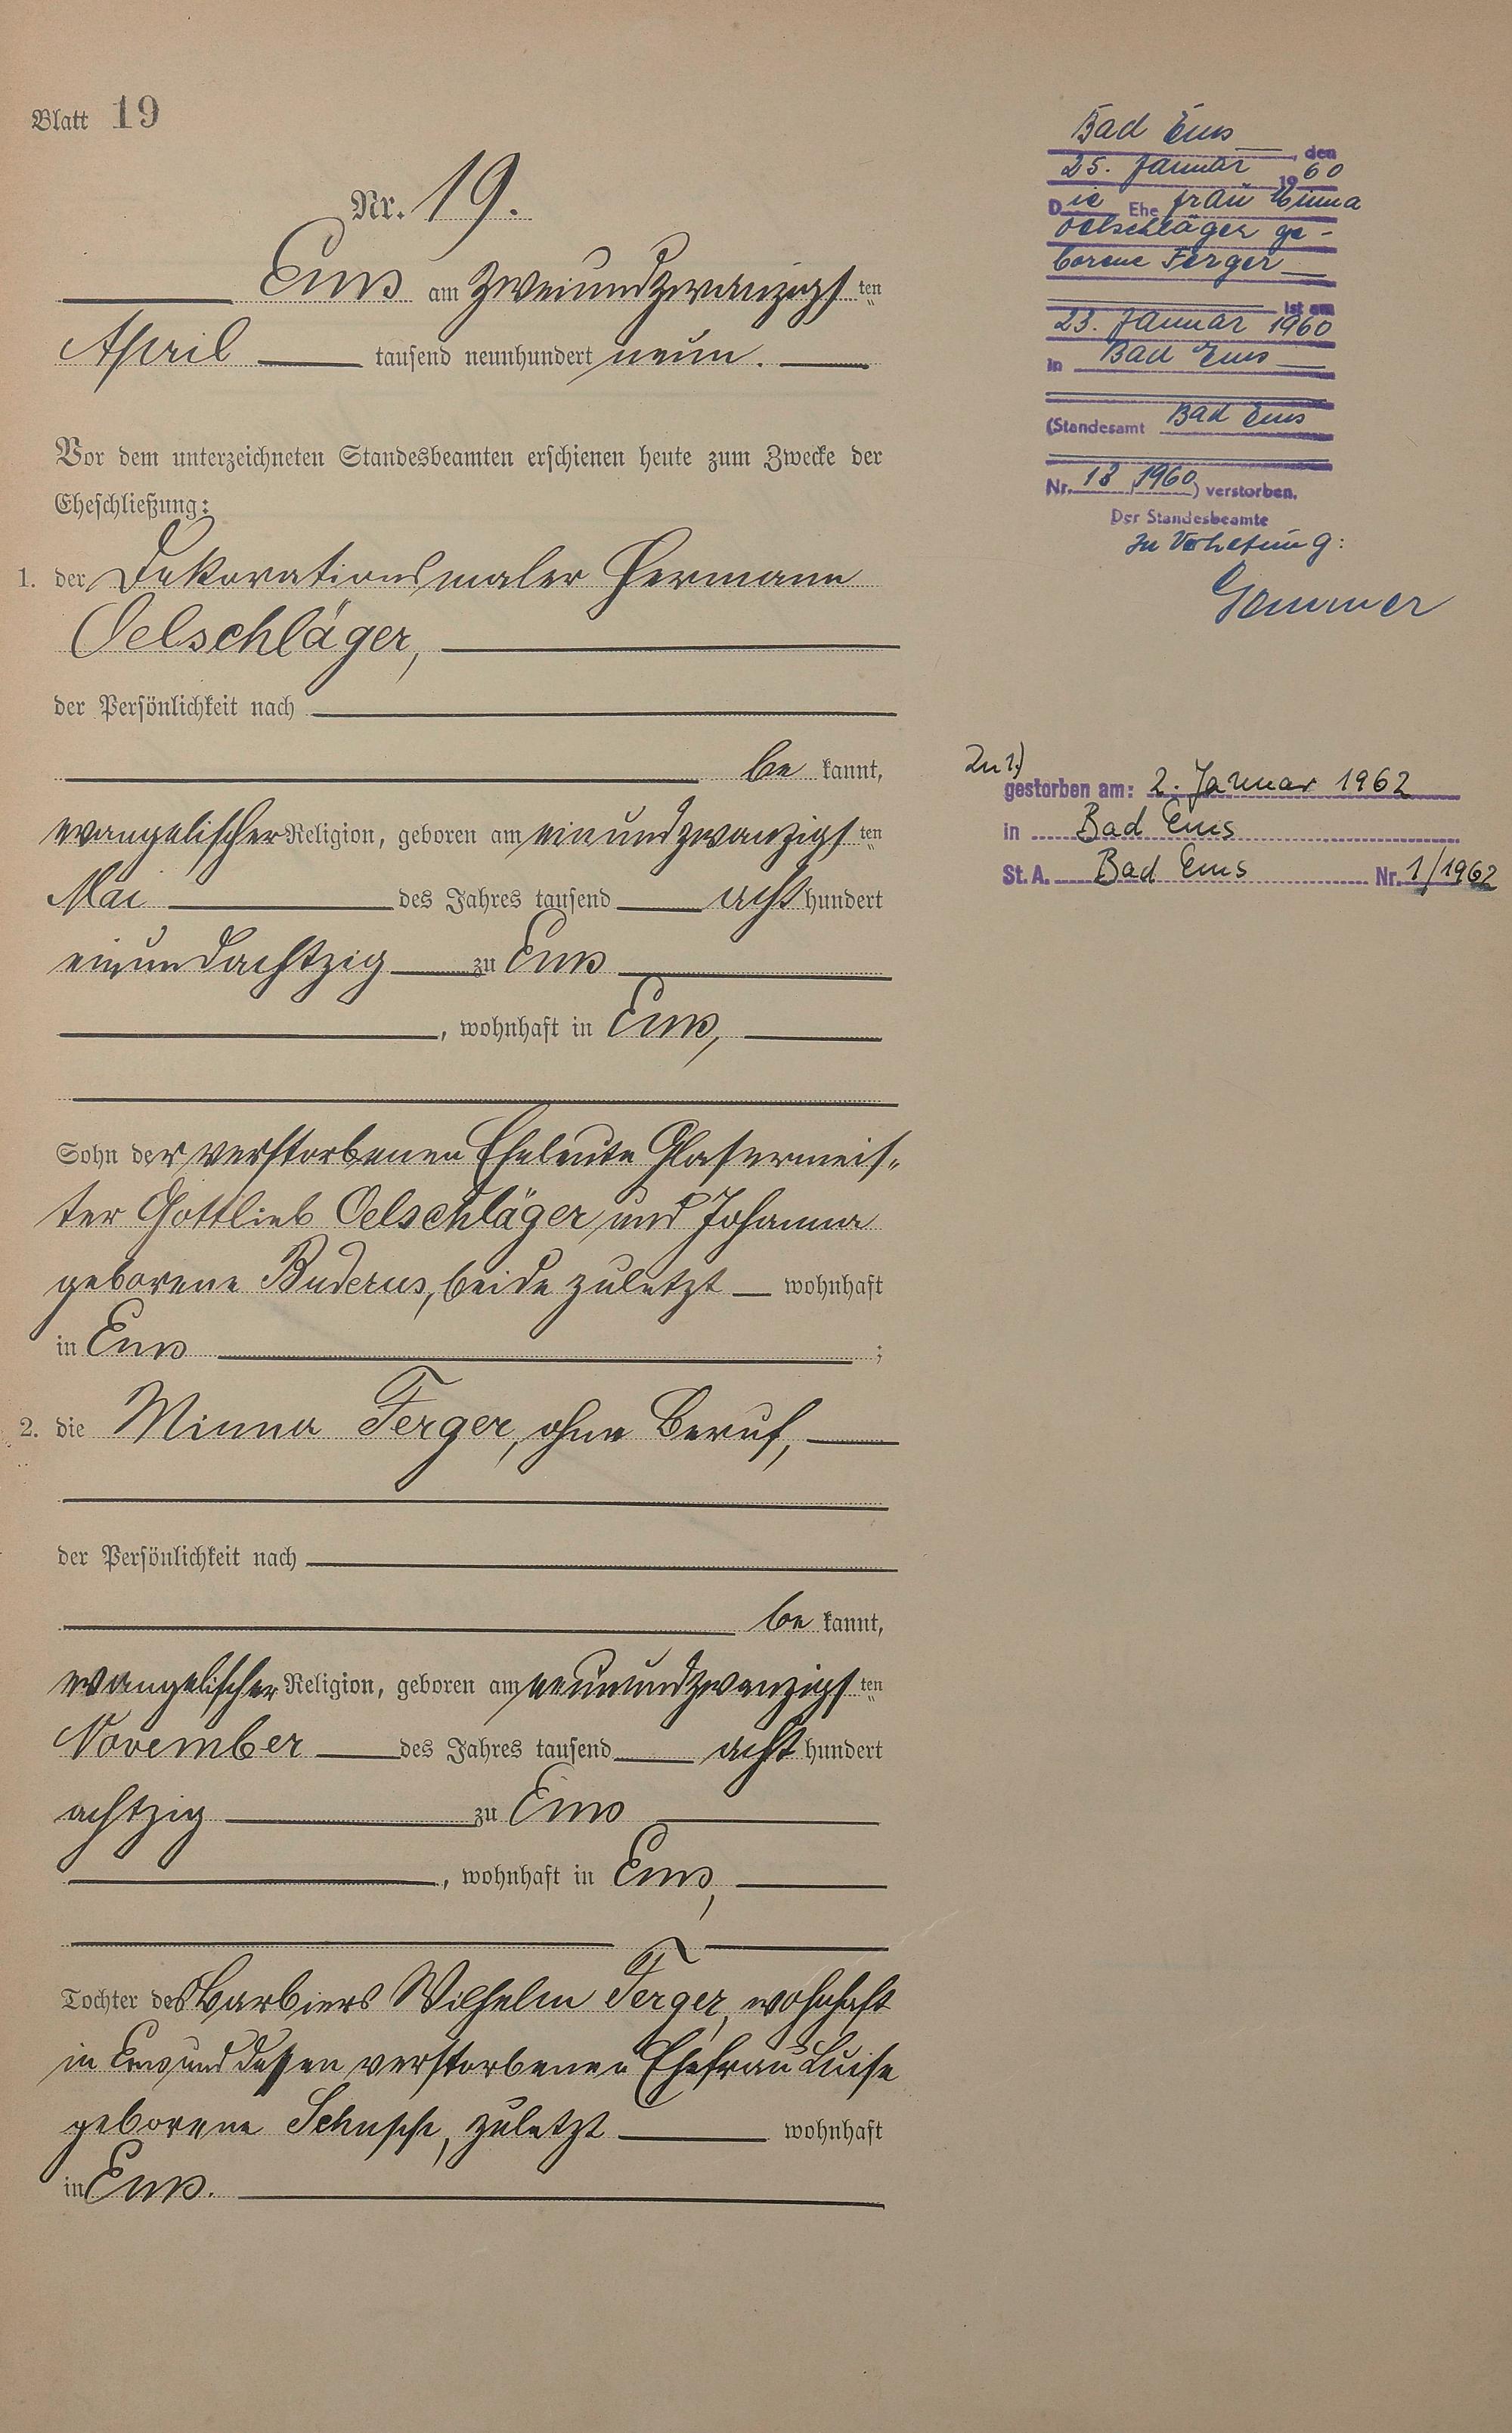 Blatt 19
Nr. 19.
Ems am zweiundzwanzigsten
April tausend neunhundert neun.
Vor dem unterzeichneten Standesbeamten erschienen heute zum Zwecke der
Eheschließung:
1. der Dekorationsmaler Hermann
Oelschläger,
der Persönlichkeit nach
be kannt,
evangelischer Religion, geboren am einundzwanzigsten
Mai des Jahres tausend acht hundert
einundachtzig zu Ems
, wohnhaft in Ems,
Sohn der verstorbenen Eheleute Glasermeis-
ter Gottlieb Oelschläger und Johanna
geborene Buderus, beide zuletzt wohnhaft
in Ems ;
2. die Minna Ferger, ohne Beruf,
der Persönlichkeit nach
be kannt,
evangelischer Religion, geboren am neunundzwanzigsten
November des Jahres tausend acht hundert
achtzig zu Ems
, wohnhaft in Ems,
Tochter des Barbiers Wilhelm Ferger, wohnhaft
in Ems und dessen verstorbenen Ehefrau Luise
geborene zuletzt wohnhaft
in Ems.
Bad Ems, den
25. Januar 1960
Die Ehefrau Minna
Oelschläger ge-
borene Ferger
ist am
23. Januar 1960
in Bad Ems
(Standesamt Bad Ems
Nr. 18/1960) verstorben.
Der Standesbeamte
In Vertretung:
Zu 1.)
gestorben am: 2. Januar 1962
in Bad Ems
St. A. Bad Ems Nr. 1/1962